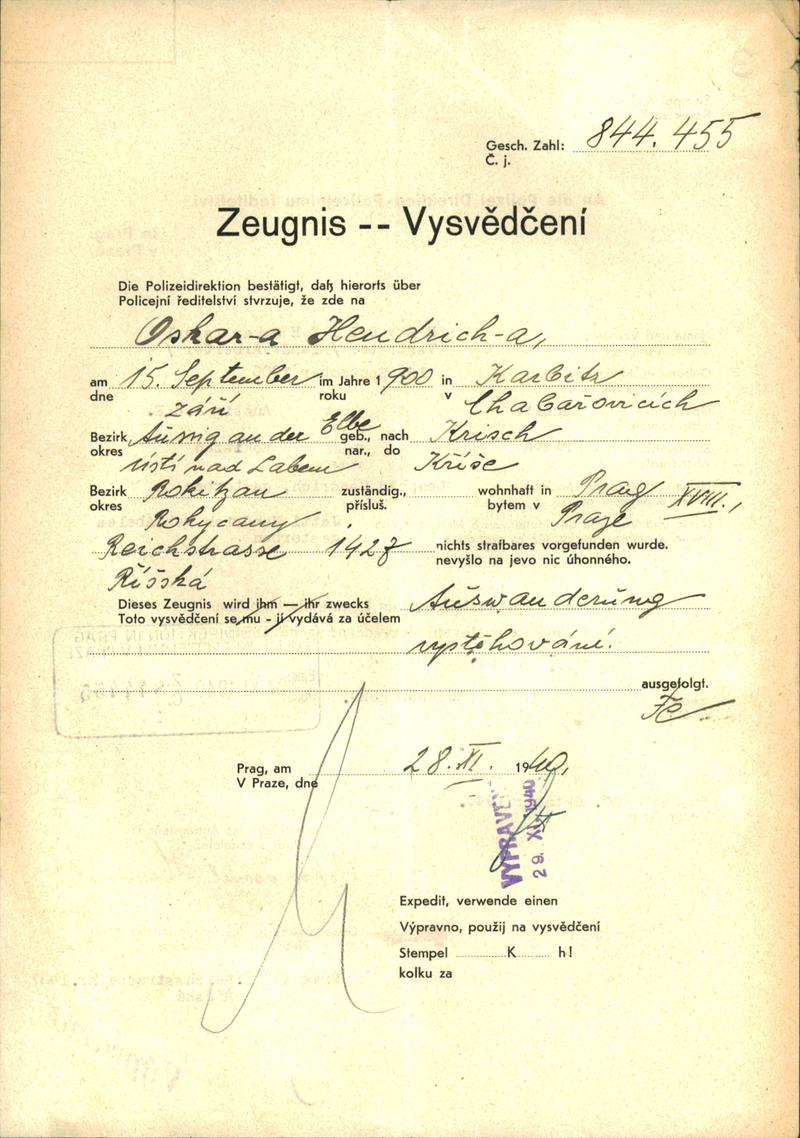 Gesch. Zahl: 844.455
Č. j.
Zeugnis -- Vysvědčení
Die Polizeidirektion bestätigt, daß hierorts über
Policejní ředitelství stvrzuje, že zde na
Oskar-a Hendrich-a,
am 15. September im Jahre 1900 in Karbitz
dne září roku v Chabařovicích
Bezirk Aussig an der Elbe geb., nach Krisch
okres Ústí nad Labem nar., do Kříše
Bezirk Rokitzan zuständig., wohnhaft in Prag XVIII.,
okres Rokycany přísluš. bytem v Praze
Reichstrasse 1427 nichts strafbares vorgefunden wurde.
Říšská nevyšlo na jevo nic úhonného.
Dieses Zeugnis wird ihm — ihr zwecks Auswanderung
Toto vysvědčení se mu - jí vydává za účelem
vystěhování.
ausgefolgt.
Prag, am 28. XI. 1940,
V Praze, dne
VYPRAVENO
29. XI. 1940
Expedit, verwende einen
Výpravno, použij na vysvědčení
Stempel K h!
kolku za